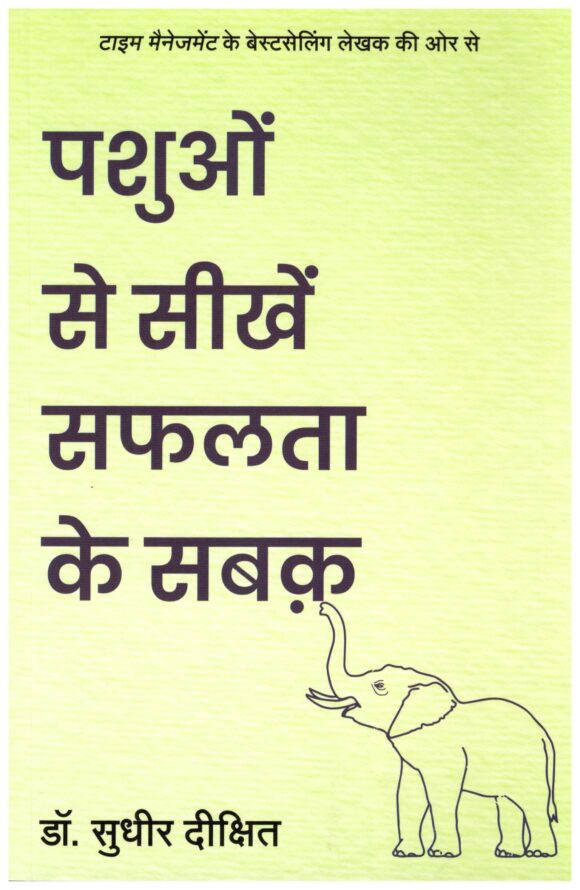 टाइम मैनेजमेंट के बेस्टसेलिंग लेखक की ओर से
पशुओं
से सीखें
सफलता
के सबक़
डॉ. सुधीर दीक्षित